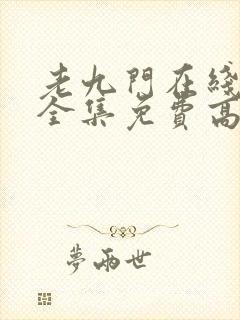 老九門在綫
全集免費高
夢兩世